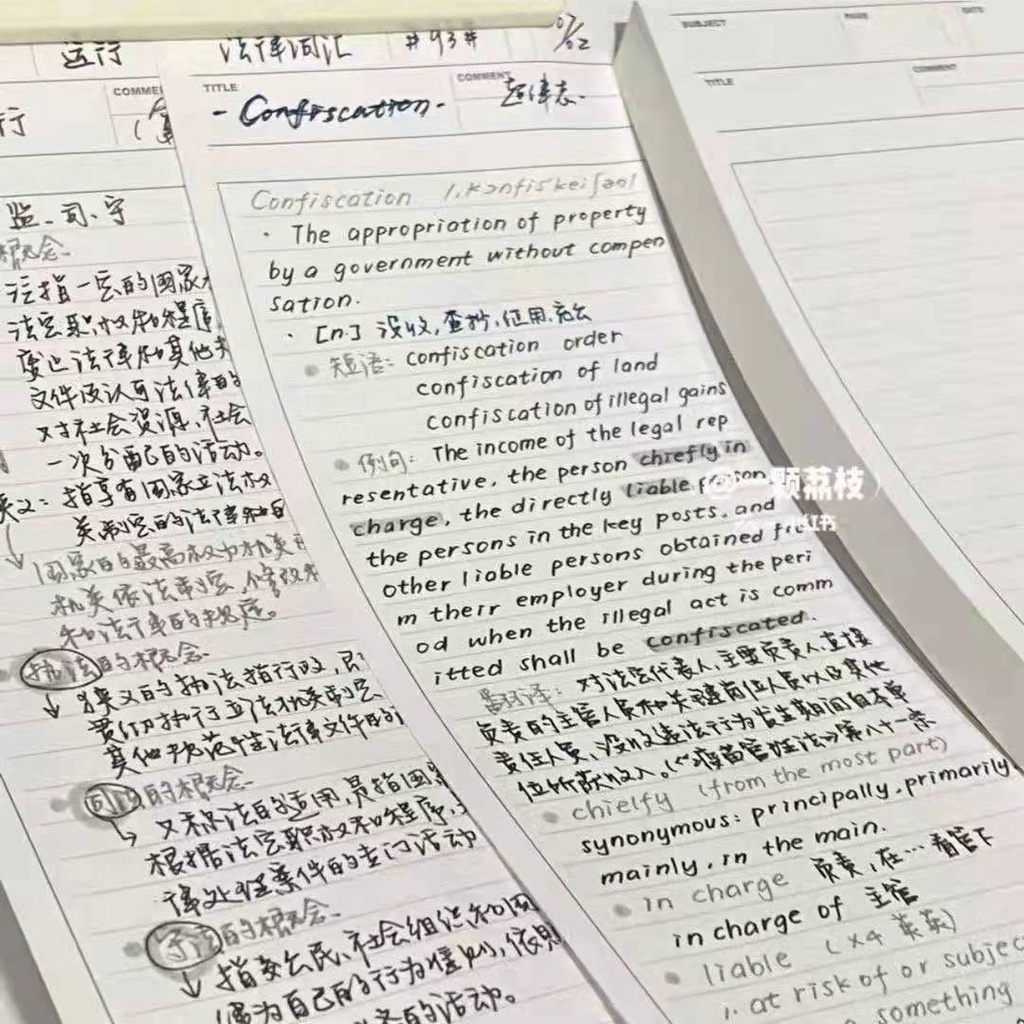 运行
行
COMME
监、司、守
概念.
法指一定的国家
法定职权和程序
废止法律和其他
文件及认可法律的
对社会资源、社会
一次分配的活动。
义:指享有国家立法权
关制定的法律和
国家的最高权力机关
机关依法制定、修改
和法律的规定。
执法的概念.
狭义的执法指行政
贯彻执行立法机关制定
其他规范性法律文件的
司法的概念.
又称法的适用,是指国
根据法定职权和程序,
律处理案件的专门活动
守法的概念.
指 公民、社会组织和国
自己的行为准则,依照
的活动。
法律词汇 #93# 07/02
TITLE
-Confiscation-
COMMENT
Confiscation /,kɔnfis'keiʃən/
· The appropriation of property
by a government without compen
sation.
· [n.] 没收,查抄,征用,充公
短语: confiscation order
confiscation of land
confiscation of illegal gains
例句: The income of the legal rep
resentative, the person chiefly in
charge, the directly liable person
the persons in the key posts, and
other liable persons obtained fro
m their employer during the peri
od when the illegal act is comm
itted shall be confiscated.
翻译: 对法定代表人、主要负责人、直接
负责的主管人员和关键岗位人员以及其他
责任人员,没收违法行为发生期间自本单
位所获收入。(《疫苗管理法》第八十一条
chielfy (from the most part)
synonymous: principally, primarily
mainly, in the main.
in charge 负责,在…看管下
in charge of 主管
liable (x4 英英)
1. at risk of or subjec
something
SUBJECT
PAGE
DATE
TITLE
COMMENT
@一颗荔枝